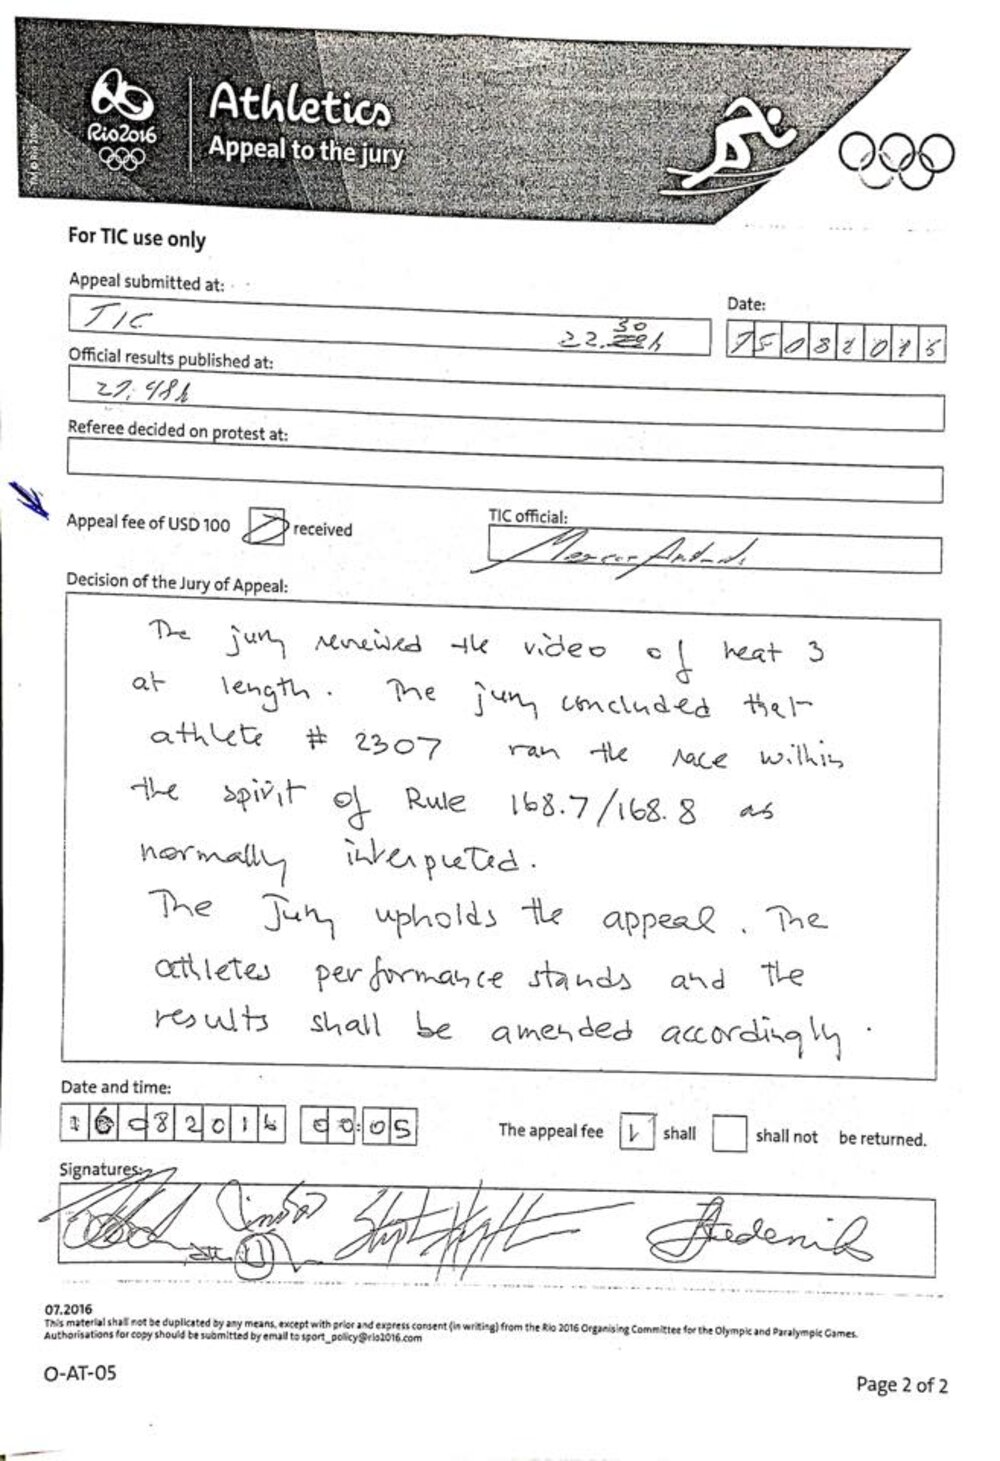 Rio2016
Athletics
Appeal to the jury
For TIC use only
Appeal submitted at:
Date:
TIC
22.30h
15082016
Official results published at:
21:48h
Referee decided on protest at:
Appeal fee of USD 100
received
TIC official:
Decision of the Jury of Appeal:
The jury reviewed the video of heat 3
at length. The jury concluded that
athlete # 2307 ran the race within
the spirit of Rule 168.7/168.8 as
normally interpreted.
The Jury upholds the appeal. The
athletes performance stands and the
results shall be amended accordingly.
Date and time:
16082016 00:05
The appeal fee
shall
shall not be returned.
Signatures:
07.2016
This material shall not be duplicated by any means, except with prior and express consent (in writing) from the Rio 2016 Organising Committee for the Olympic and Paralympic Games.
Authorisations for copy should be submitted by email to sport_policy@rio2016.com
O-AT-05
Page 2 of 2